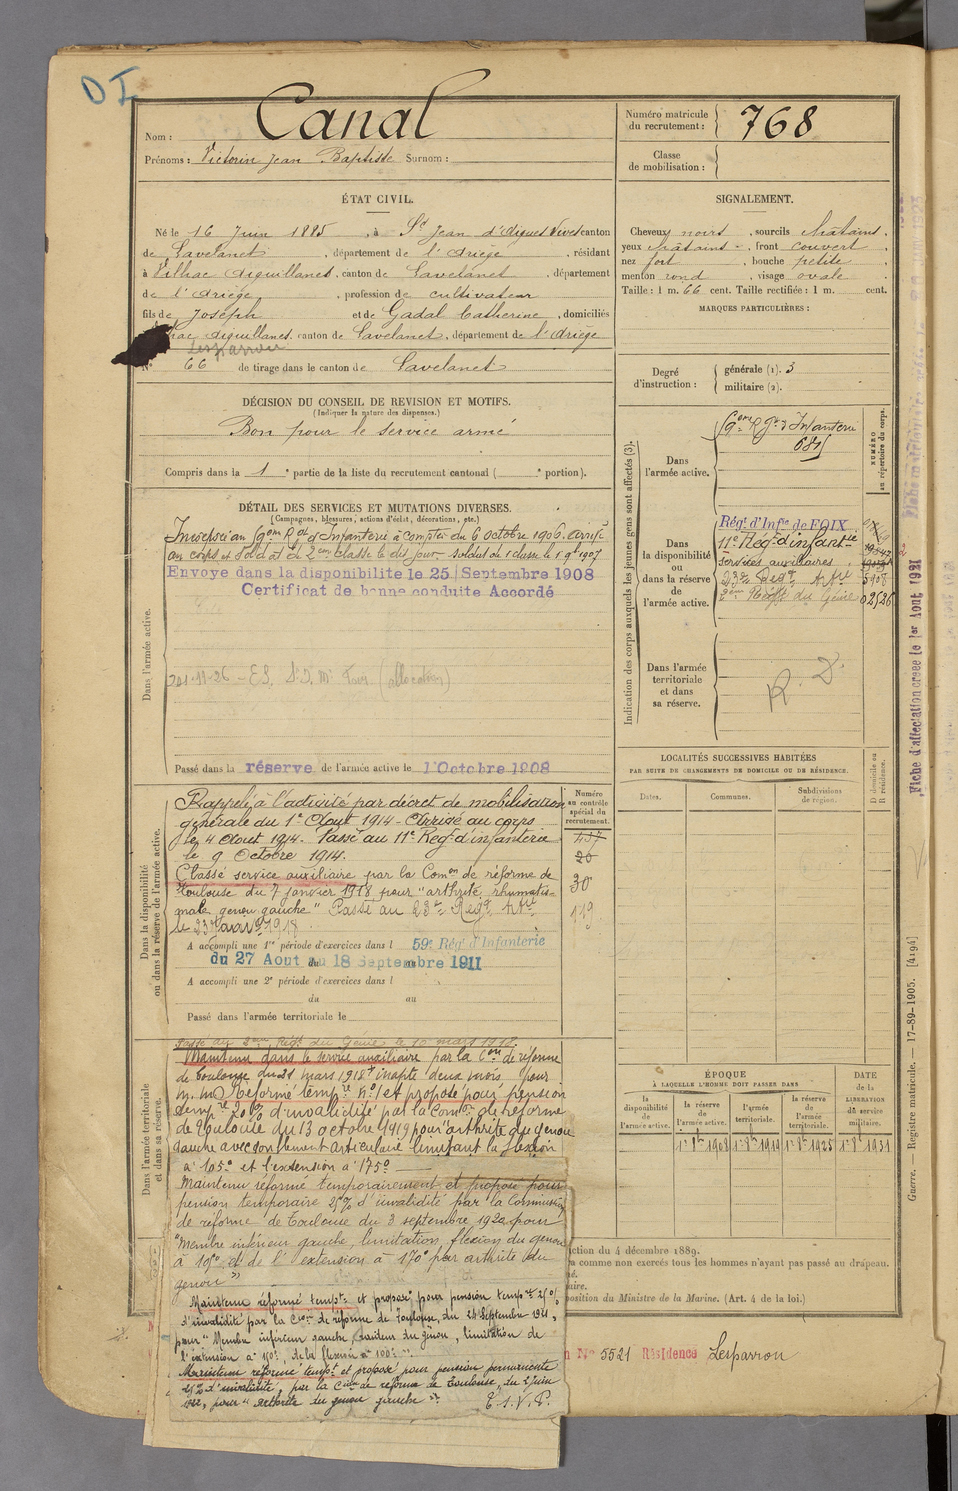 D I
Nom : Canal
Prénoms : Victorin Jean Baptiste Surnom :
Numéro matricule du recrutement : 768
Classe de mobilisation :
ÉTAT CIVIL.
Né le 16 Juin 1885, à St Jean d'Aigues Vives canton
de Lavelanet, département de l'Ariège, résidant
à Vilhac Aiguillanes, canton de Lavelanet, département
de l'Ariège, profession de cultivateur
fils de Joseph et de Gadal Catherine, domiciliés
Aiguillanes, canton de Lavelanet, département de l'Ariège
Lesparrou
N° 66 de tirage dans le canton de Lavelanet
SIGNALEMENT.
Cheveux noirs, sourcils châtains,
yeux châtains, front couvert,
nez fort, bouche petite,
menton rond, visage ovale.
Taille : 1 m. 66 cent. Taille rectifiée : 1 m. cent.
MARQUES PARTICULIÈRES :
Degré d'instruction : générale (1). 3
militaire (2).
DÉCISION DU CONSEIL DE REVISION ET MOTIFS.
(Indiquer la nature des dispenses.)
Bon pour le service armé
Compris dans la 1e partie de la liste du recrutement cantonal ( e portion).
DÉTAIL DES SERVICES ET MUTATIONS DIVERSES.
[Campagnes, blessures, actions d'éclat, décorations, etc.]
Dans l'armée active.
Incorporé au 59eme Rgt d'Infanterie à compter du 6 octobre 1906. Arrivé
au corps et soldat de 2eme classe le dit jour.
Envoye dans la disponibilite le 25 Septembre 1908
Certificat de bonne conduite Accordé
Passé dans la réserve de l'armée active le 1 Octobre 1908
Indication des corps auxquels les jeunes gens sont affectés (3).
NUMÉRO au répertoire du corps.
Dans l'armée active.
59eme Rgt d'Infanterie
Dans la disponibilité ou dans la réserve de l'armée active.
Régt d'Infie de FOIX
11e Régt d'infantie
services auxiliaires
23e Regt Artie 5908
2eme Régt du Génie 02526
Dans l'armée territoriale et dans sa réserve.
R. D.
Fiche d'affectation créée le 1er Aout 1931
LOCALITÉS SUCCESSIVES HABITÉES
PAR SUITE DE CHANGEMENTS DE DOMICILE OU DE RÉSIDENCE.
Dates. Communes. Subdivisions de région. D domicile ou R résidence.
Numéro au contrôle spécial du recrutement.
437
20
30
119
Dans la disponibilité ou dans la réserve de l'armée active.
Rappelé à l'activité par décret de mobilisation
générale du 1er Aout 1914 - Arrivé au corps
le 4 Aout 1914. Passé au 11e Régt d'infanterie
le 9 Octobre 1914.
Classé service auxiliaire par la Comon de réforme de
Toulouse du 7 janvier 1918 pour "arthrite rhumatis-
male genou gauche" Passé au 23e Régt Artie
A accompli une 1re période d'exercices dans l 59e Régt d'Infanterie
du 27 Aout au 18 Septembre 1911
A accompli une 2e période d'exercices dans l
du au
Passé dans l'armée territoriale le
Dans l'armée territoriale et dans sa réserve.
Passé au 2eme Régt du Génie le 10 mars 1918.
Maintenu dans le service auxiliaire par la Con de réforme
de Toulouse du 21 mars 1918 inapte deux mois pour
m. m. Réformé tempre n° 1 et proposé pour pension
tempre 20% d'invalidité par la Comon de Réforme
de Toulouse du 13 octobre 1919 pour "arthrite du genou
gauche avec gonflement articulaire limitant la flexion
à 105° et l'extension à 175°
Maintenu réformé temporairement et proposé pour
pension temporaire 25% d'invalidité par la Commission
de réforme de Toulouse du 3 septembre 1920 pour
"Membre inférieur gauche, limitation flexion du genou
à 105° et de l'extension à 170° par arthrite du
genou"
Maintenu réformé tempt et proposé pour pension tempre 25%
d'invalidité par la Cion de réforme de Toulouse, du 24 Septembre 1921,
pour "Membre inférieur gauche, raideur du genou, limitation de
l'extension à 150°, de la flexion à 100°"
Maintenu réformé tempt et proposé pour pension permanente
25% d'invalidité, par la Cion de réforme de Toulouse, du 2 Juin
1922, pour "Arthrite du genou gauche"
ÉPOQUE
À LAQUELLE L'HOMME DOIT PASSER DANS
la disponibilité de l'armée active. la réserve de l'armée active. l'armée territoriale. la réserve de l'armée territoriale.
DATE de la LIBÉRATION du service militaire.
1er 8bre 1908 1er 8bre 1919 1er 8bre 1925 1er 8bre 1931
ction du 4 décembre 1889.
comme non exercés tous les hommes n'ayant pas passé au drapeau.
position du Ministre de la Marine. (Art. 4 de la loi.)
N° 5521 Résidence Lesparrou
Guerre. — Registre matricule. — 17-89-1905. [4194]